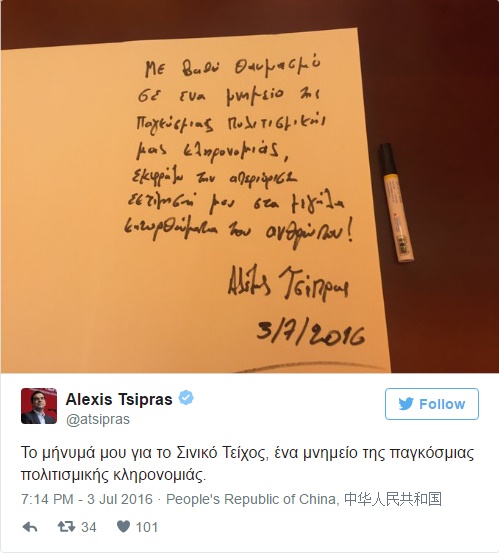 Με βαθύ θαυμασμό
σε ένα μνημείο της
Παγκόσμιας Πολιτισμικής
μας κληρονομιάς,
εκφράζω την απεριόριστη
εκτίμησή μου στα μεγάλα
κατορθώματα του ανθρώπου!
Αλέξης Τσίπρας
3/7/2016
Alexis Tsipras
@atsipras
Follow
Το μήνυμά μου για το Σινικό Τείχος, ένα μνημείο της παγκόσμιας
πολιτισμικής κληρονομιάς.
7:14 PM - 3 Jul 2016 · People's Republic of China, 中华人民共和国
34 101